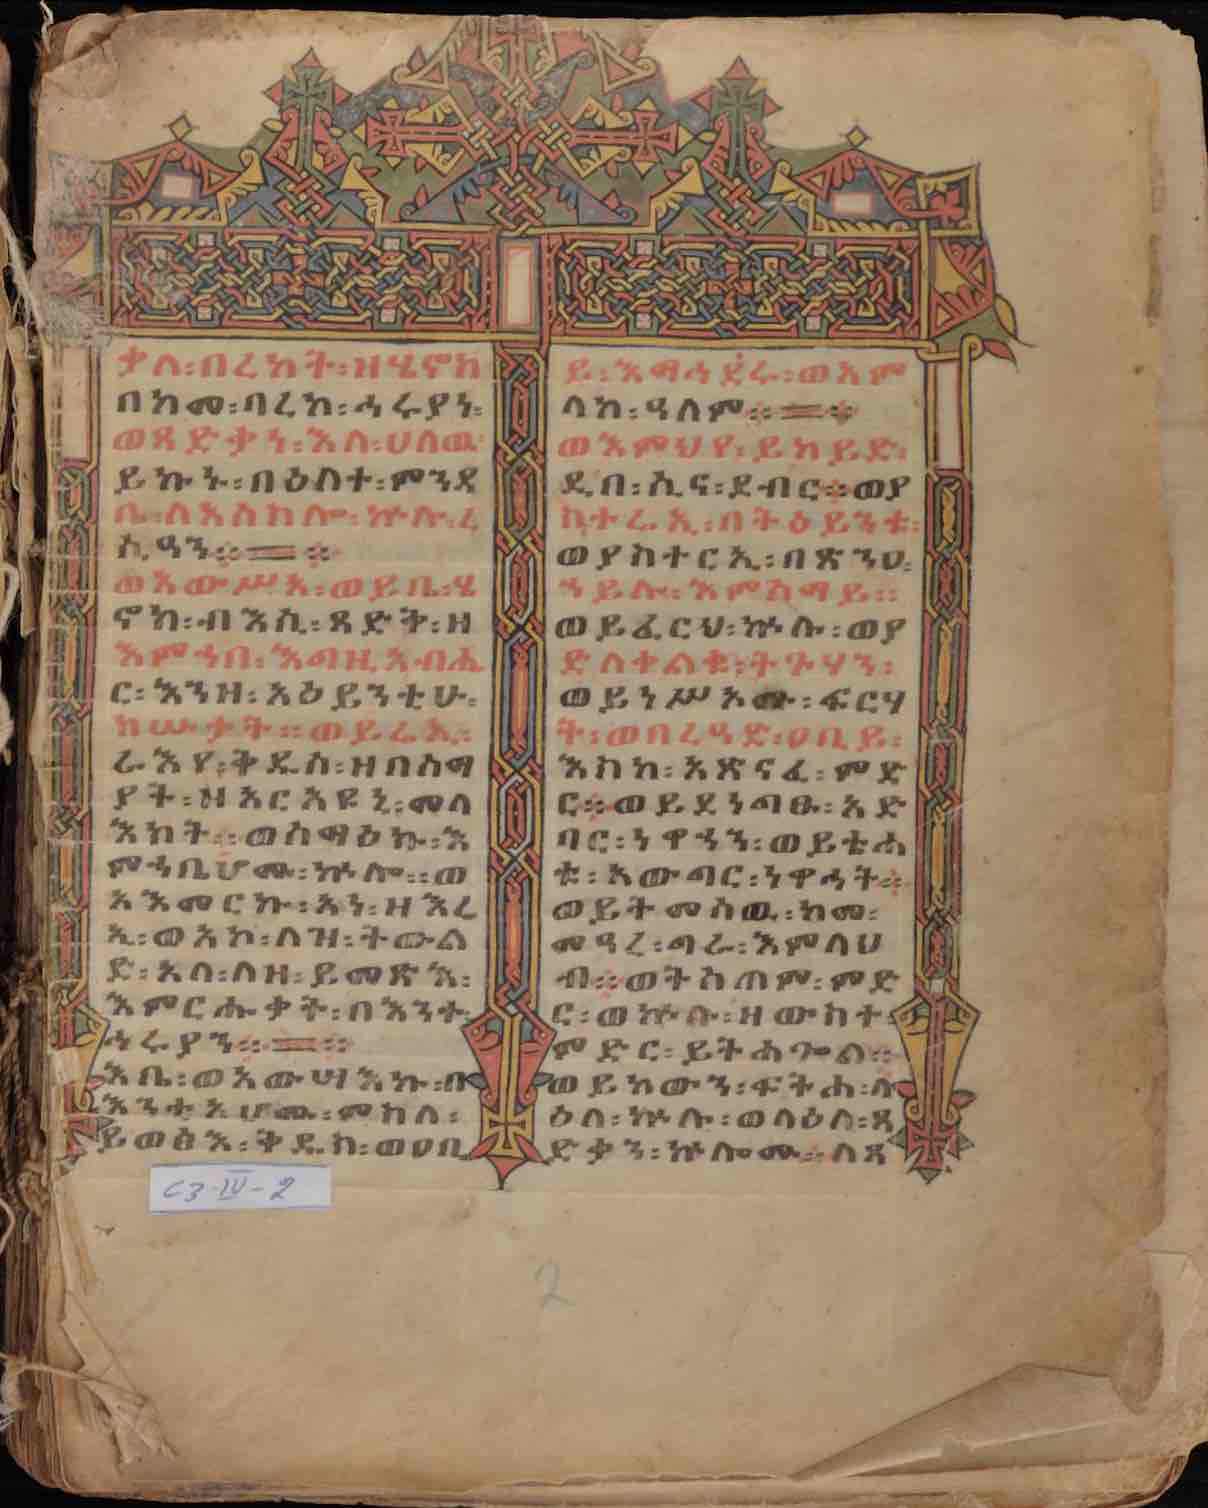 ቃለ፡በረከት፡ዘሄኖክ
በከመ፡ባረከ፡ኅሩያነ፡
ወጻድቃነ፡እለ፡ሀለዉ፡
ይኩኑ፡በዕለተ፡ምንዳ
ቤ፡ለአስስሎ፡ኵሉ፡ረ
ሲዓን፨═፨
ወአውሥአ፡ወይቤ፡ሄ
ኖክ፡ብእሲ፡ጻድቅ፡ዘ
እምኀበ፡እግዚአብሔ
ር፡እንዘ፡አዕይንቲሁ፡
ክሡታት፡፡ወይሬኢ፡
ራእየ፡ቅዱስ፡ዘበሰማ
ያት፡ዘአርአዩኒ፡መላ
እክት፨ወሰማዕኩ፡እ
ምኀቤሆሙ፡ኵሎ፡፡ወ
አእመርኩ፡አነ፡ዘእሬ
ኢ፡ወአኮ፡ለዝ፡ትውል
ድ፡አላ፡ለዘ፡ይመጽእ፡
እምርሑቃት፡በእንተ፡
ኅሩያን፨═፨
እቤ፡ወአውሣእኩ፡በ
እንቲአሆሙ፡ምስለ፡
ይወፅእ፡ቅዱስ፡ወዐቢ
ይ፡እማኅደሩ፡ወአም
ላክ፡ዓለም፨═፨
ወእምህየ፡ይከይድ፡
ዲበ፡ሲና፡ደብር፨ወያ
ስተሬኢ፡በትዕይንቱ፡
ወያስተርኢ፡በጽንዐ፡
ኀይሉ፡እምሰማይ፡፡
ወይፈርህ፡ኵሉ፡ወያ
ድለቀልቁ፡ትጉሃን፡
ወይነሥኦሙ፡ፍርሃ
ት፡ወበረዓድ፡ዐቢይ፡
እስከ፡አጽናፈ፡ምድ
ር፨ወይደነግፁ፡አድ
ባር፡ነዋኃን፡ወይቴሐ
ቱ፡አውግር፡ነዋኃት፨
ወይትመሰዉ፡ከመ፡
መዓረ፡ግራ፡እምላህ
ብ፨ወትሰጠም፡ምድ
ር፡ወኵሉ፡ዘውስተ፡
ምድር፡ይትሐጐል፨
ወይከውን፡ፍትሐ፡ላ
ዕለ፡ኵሉ፡ወላዕለ፡ጻ
ድቃን፡ኵሎሙ፨ለጻ
C3-IV-2
2